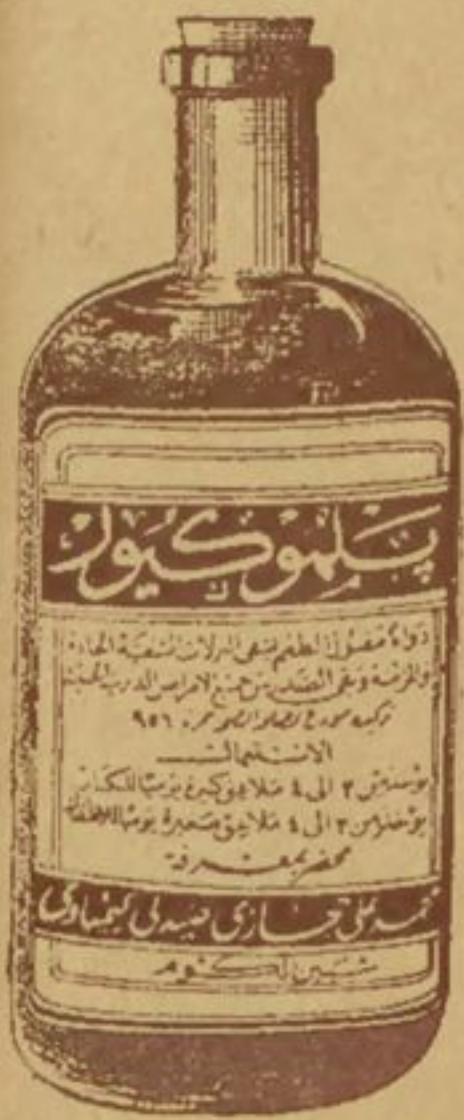 پلموكيور
دواء مقبول الطعم يشفى النزلات الشعبية الحادة
والمزمنة ويقى الصدر من جميع الامراض
٩٥٦
الاستعمال
يؤخذ من ٣ الى ٤ ملاعق كبيرة يوميا للكبار
يؤخذ من ٣ الى ٤ ملاعق صغيرة يوميا للاطفال
محضر بمعرفة
محمد على حجازى صيدلى كيماوى
شبين الكوم